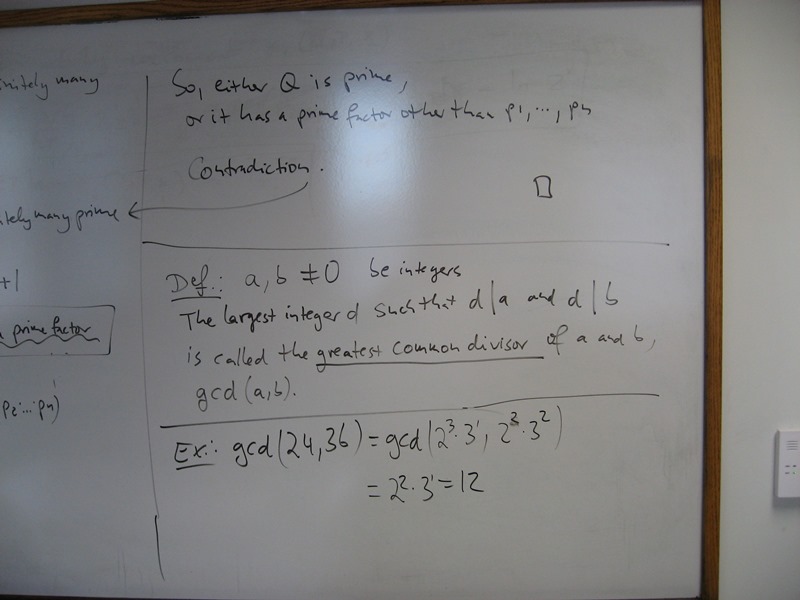 nitely many
tely many prime
+1
a prime factor
p2·...·pn)
So, either Q is prime,
or it has a prime factor other than p1, ..., pn
Contradiction.
Def.: a, b ≠ 0 be integers
The largest integer d such that d|a and d|b
is called the greatest common divisor of a and b,
gcd(a,b).
Ex.: gcd(24,36) = gcd(2³·3¹, 2²·3²)
= 2²·3¹ = 12